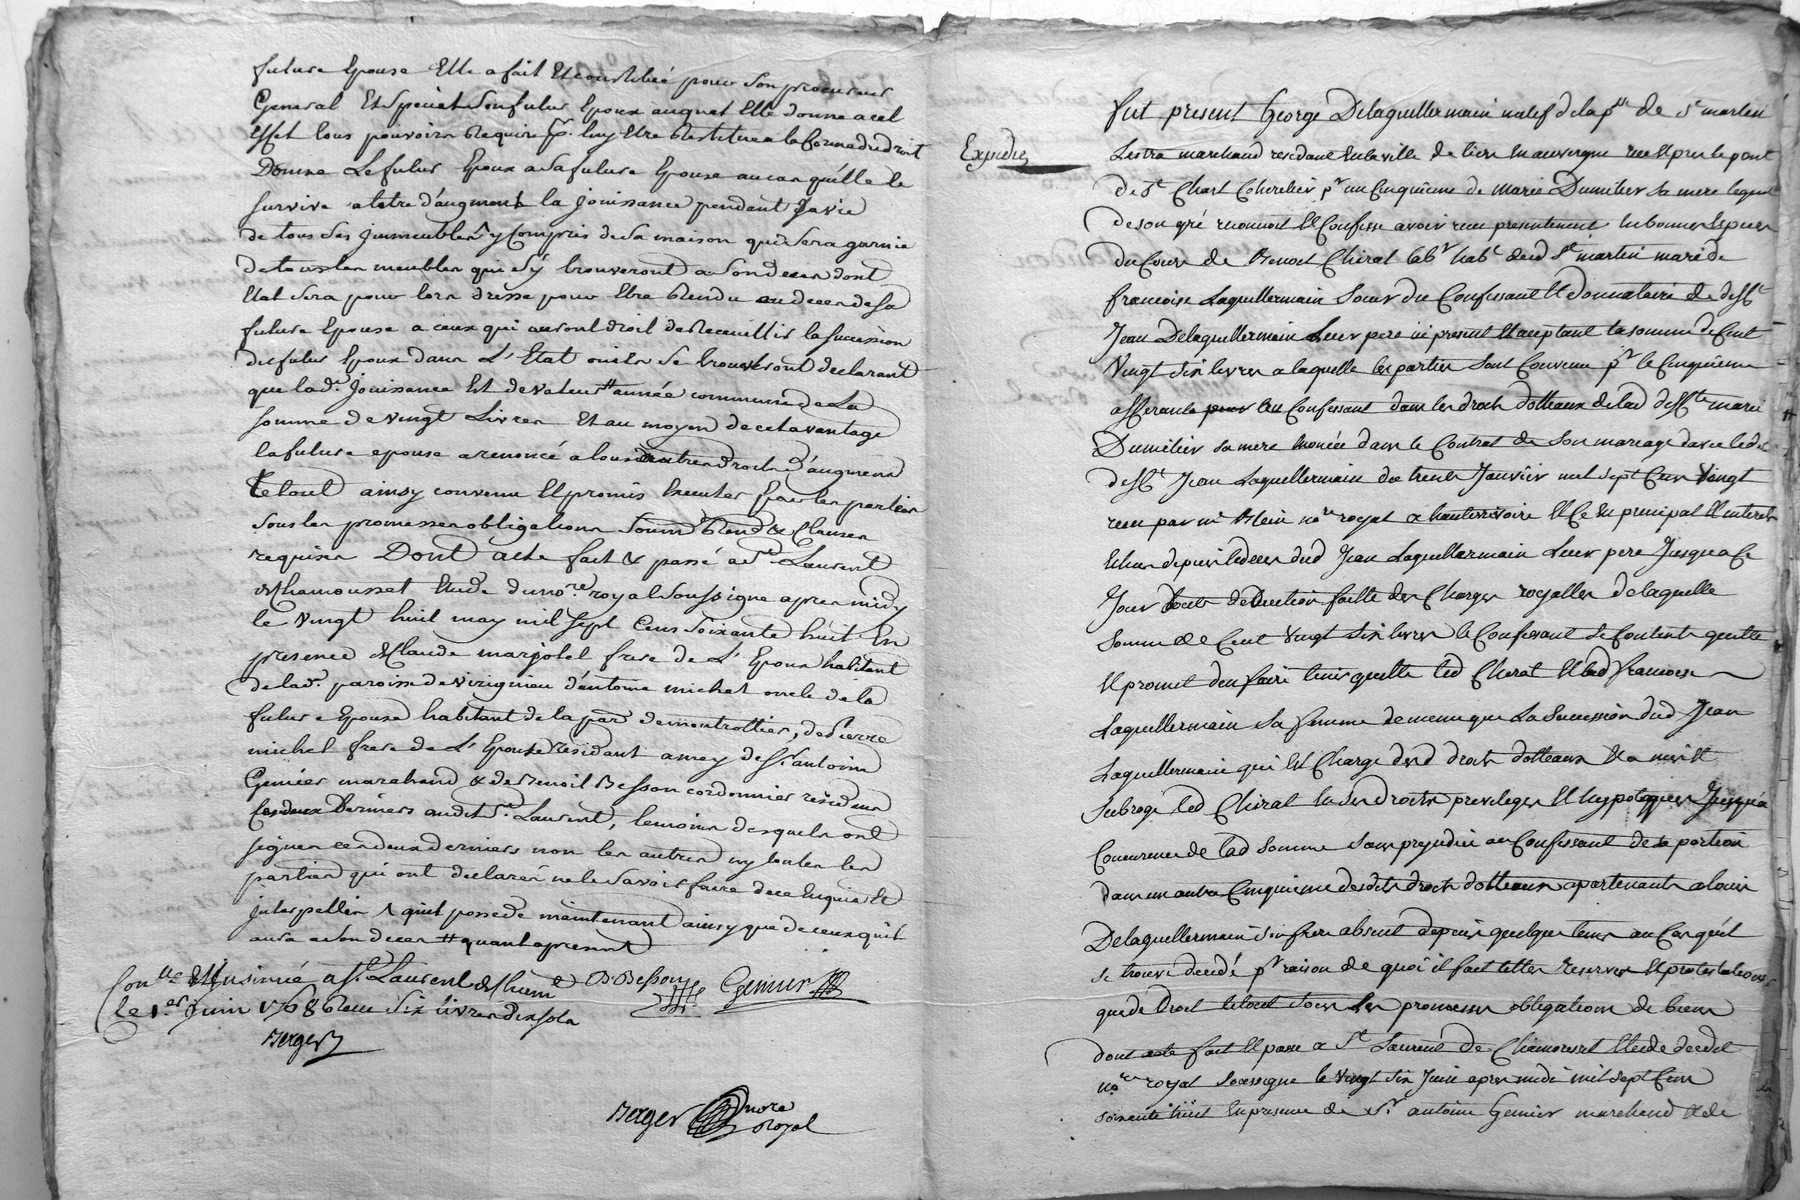 future Epouse Elle a fait Et constitué pour son procureur
General Et Special son futur Epoux auquel Elle donne a cet
Effet tous pouvoirs Requis pr. luy Etre Restituée a la forme du droit
Donne Le futur Epoux a sa future Epouse au cas qu'elle le
survive a titre d'augment la Jouissance pendant sa vie
de tous ses Jmmeubles y Compris de sa maison qui sera garnie
de tous les meubles qui s'y trouveront a son deces dont
Etat sera pour lors dressé pour Etre Rendu au deces de sa
future Epouse a ceux qui auront droit de Receuillir la succession
du futur Epoux dans L'Etat ou ils se trouveront declarant
que lade. Jouissance Est de valeur # année commune de La
somme de vingt Livres Et au moyen de cet avantage
la future epouse a renoncé a tous autres droits d'augment
Le tout ainsy convenu Et promis Executer par les parties
sous les promesses obligations soum Renon & Clauses
requises Dont acte fait & passé a st. Laurent
de Chamousset Etude du nore. royal soussigné apres midy
le vingt huit may mil sept Cens soixante huit En
presence de Claude marjolet frere de L'Epoux habitant
de lade. paroisse de d'antoine michel oncle de la
future Epouse habitant de la par de montrottier, de pierre
michel frere de L'Epouse residant a de sr. antoine
Gemier marchand & de Benoit Besson cordonnier residens
ces deux Derniers audit st. Laurent, temoins desquels ont
signé ces deux derniers non les autres ny toutes les
parties qui ont declaré ne le savoir faire de ce Enquis Et
jnterpellés \ qu'il possede maintenant ainsy que de ceux qu'il
aura a son deces # quant a present
Conlle. & Insinué a St. Laurent de Cham B Besson Gemier
le 1er Juin 1768 Reçu six livres dix sols
Berger
Berger nore
royal
Expedié
fut present George Delaguillermain natif de la psse de St martin
Lestra marchand residant en la ville de en auvergne rue Et pres le pont
de St pr un Cinquième de marie Dumilier sa mere lequel
de son gré reconnoit Et Confesse avoir reçu presentement en bonnes Especes
du Cours de Benoit Chirat labr habt dud St martin mari de
francoise Laguillermain soeur du Confessant Et donnataire de deft
Jean Delaguillermain Leur pere ici present Et acceptant la somme de Cent
Vingt six livres a laquelle les parties sont Convenu pr le Cinquième
afferant au Confessant dans les droits dotteaux de lad deffte marie
Dumilier sa mere Enoncée dans le Contrat de son mariage d'avec ledit
defft Jean Laguillermain du trente Janvier mil sept Cens Vingt
reçu par me nore royal a hauterivoire Et Ce En principal Et interets
Echus depuis le deces dud Jean Laguillermain Leur pere Jusqua Ce
Jour toute deduction faitte des Charges royalles de laquelle
somme de Cent Vingt six livres le Confessant se Contente quitte
Et promet den faire tenir quitte led Chirat Et lad francoise
Laguillermain sa femme de meme que La succession dud Jean
Laguillermain qui Est Charge desd droits dotteaux Et a mis Et
subrogé led Chirat En ses droits privileges Et hypoteques Jusqu'a
Concurrence de lad somme sans prejudice au Confessant de sa portion
dans un autre Cinquieme desdits droits dotteaux apartenants a louis
Delaguillermain son frere absent depuis quelque tems au Cas quil
se trouve decedé pr raison de quoi il fait telles reserves Et protestations
que de Droit le tout sous Les promesses obligations de biens
dont acte fait Et passé a St Laurent de Chamousset Etude dudit
nore royal soussigné le Vingt six Juin apres midi mil sept Cens
soixante huit En presence de sr antoine Gemier marchand Et de